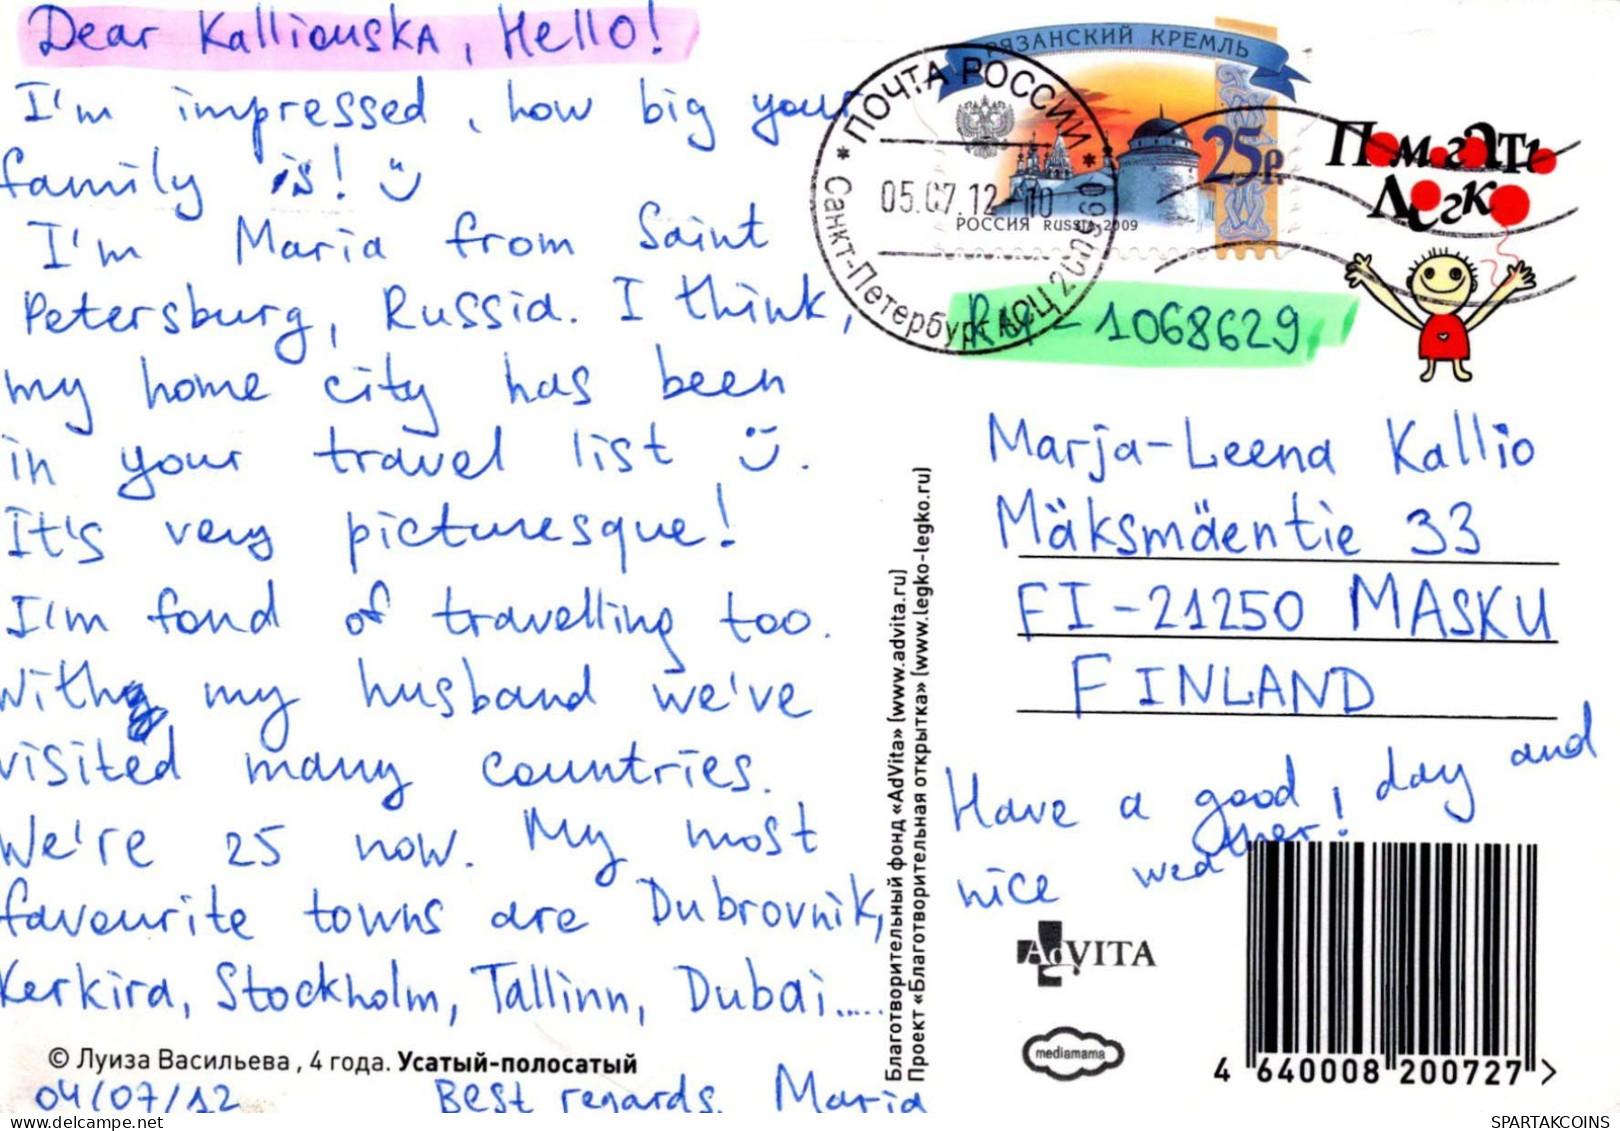 Dear Kalliouska, Hello!
I'm impressed, how big your
family is! :)
I'm Maria from Saint
Petersburg, Russia. I think,
my home city has been
in your travel list :).
It's very picturesque!
I'm fond of travelling too.
With my husband we've
visited many countries.
We're 25 now. My most
favourite towns are Dubrovnik,
Kerkira, Stockholm, Tallinn, Dubai.....
© Луиза Васильева , 4 года. Усатый-полосатый
04/07/12 Best regards, Maria
Благотворительный фонд «AdVita» (www.advita.ru)
Проект «Благотворительная открытка» (www.legko-legko.ru)
РЯЗАНСКИЙ КРЕМЛЬ
25р
РОССИЯ RUSSIA 2009
* ПОЧТА РОССИИ *
05.07.12 10
Санкт-Петербург АСЦ 200960
Помогать
Легко
RU-1068629
Marja-Leena Kallio
Mäksmäentie 33
FI-21250 MASKU
FINLAND
Have a good day and
nice weather!
AdVITA
mediamama
4 640008 200727 >
SPARTAKCOINS